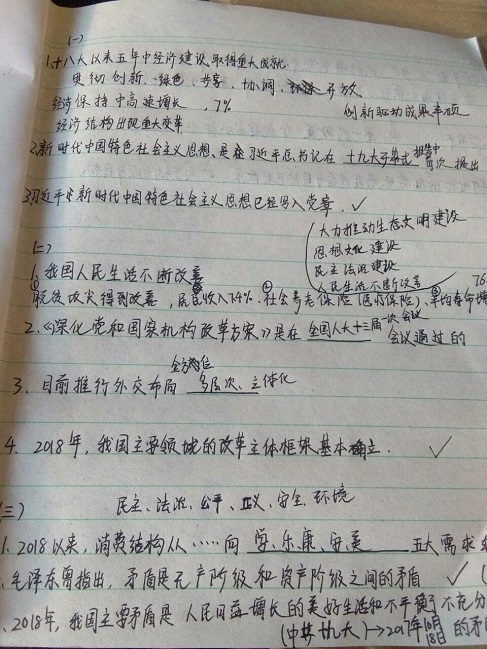 (一)
1.十八大以来五年中经济建设取得重大成就
贯彻创新、绿色、共享、协调、开放
经济保持中高速增长,7%
创新驱动成果丰硕
经济结构出现重大变革
2.新时代中国特色社会主义思想,是习近平总书记在十九大开幕式报告中首次提出
3.习近平新时代中国特色社会主义思想已经写入党章 ✓
大力推动生态文明建设
思想文化建设
民主法治建设
人民生活不断改善
(二)
1.我国人民生活不断改善
①脱贫攻坚得到改善,居民收入7.4% ②社会养老保险(医疗保险),③平均寿命增 76.
2.《深化党和国家机构改革方案》是在全国人大十三届一次会议会议通过的
3、目前推行外交布局全方位多层次、立体化
4、2018年,我国主要领域的改革主体框架基本确立. ✓
(三) 民主、法治、公平、正义、安全、环境
1.2018以来,消费结构从……向学、乐、康、安、美五大需求
.毛泽东曾指出,矛盾是无产阶级和资产阶级之间的矛盾 ✓
.2018年,我国主要矛盾是人民日益增长的美好生活和不平衡不充分
(中共十九大)→2017年10月18日的矛